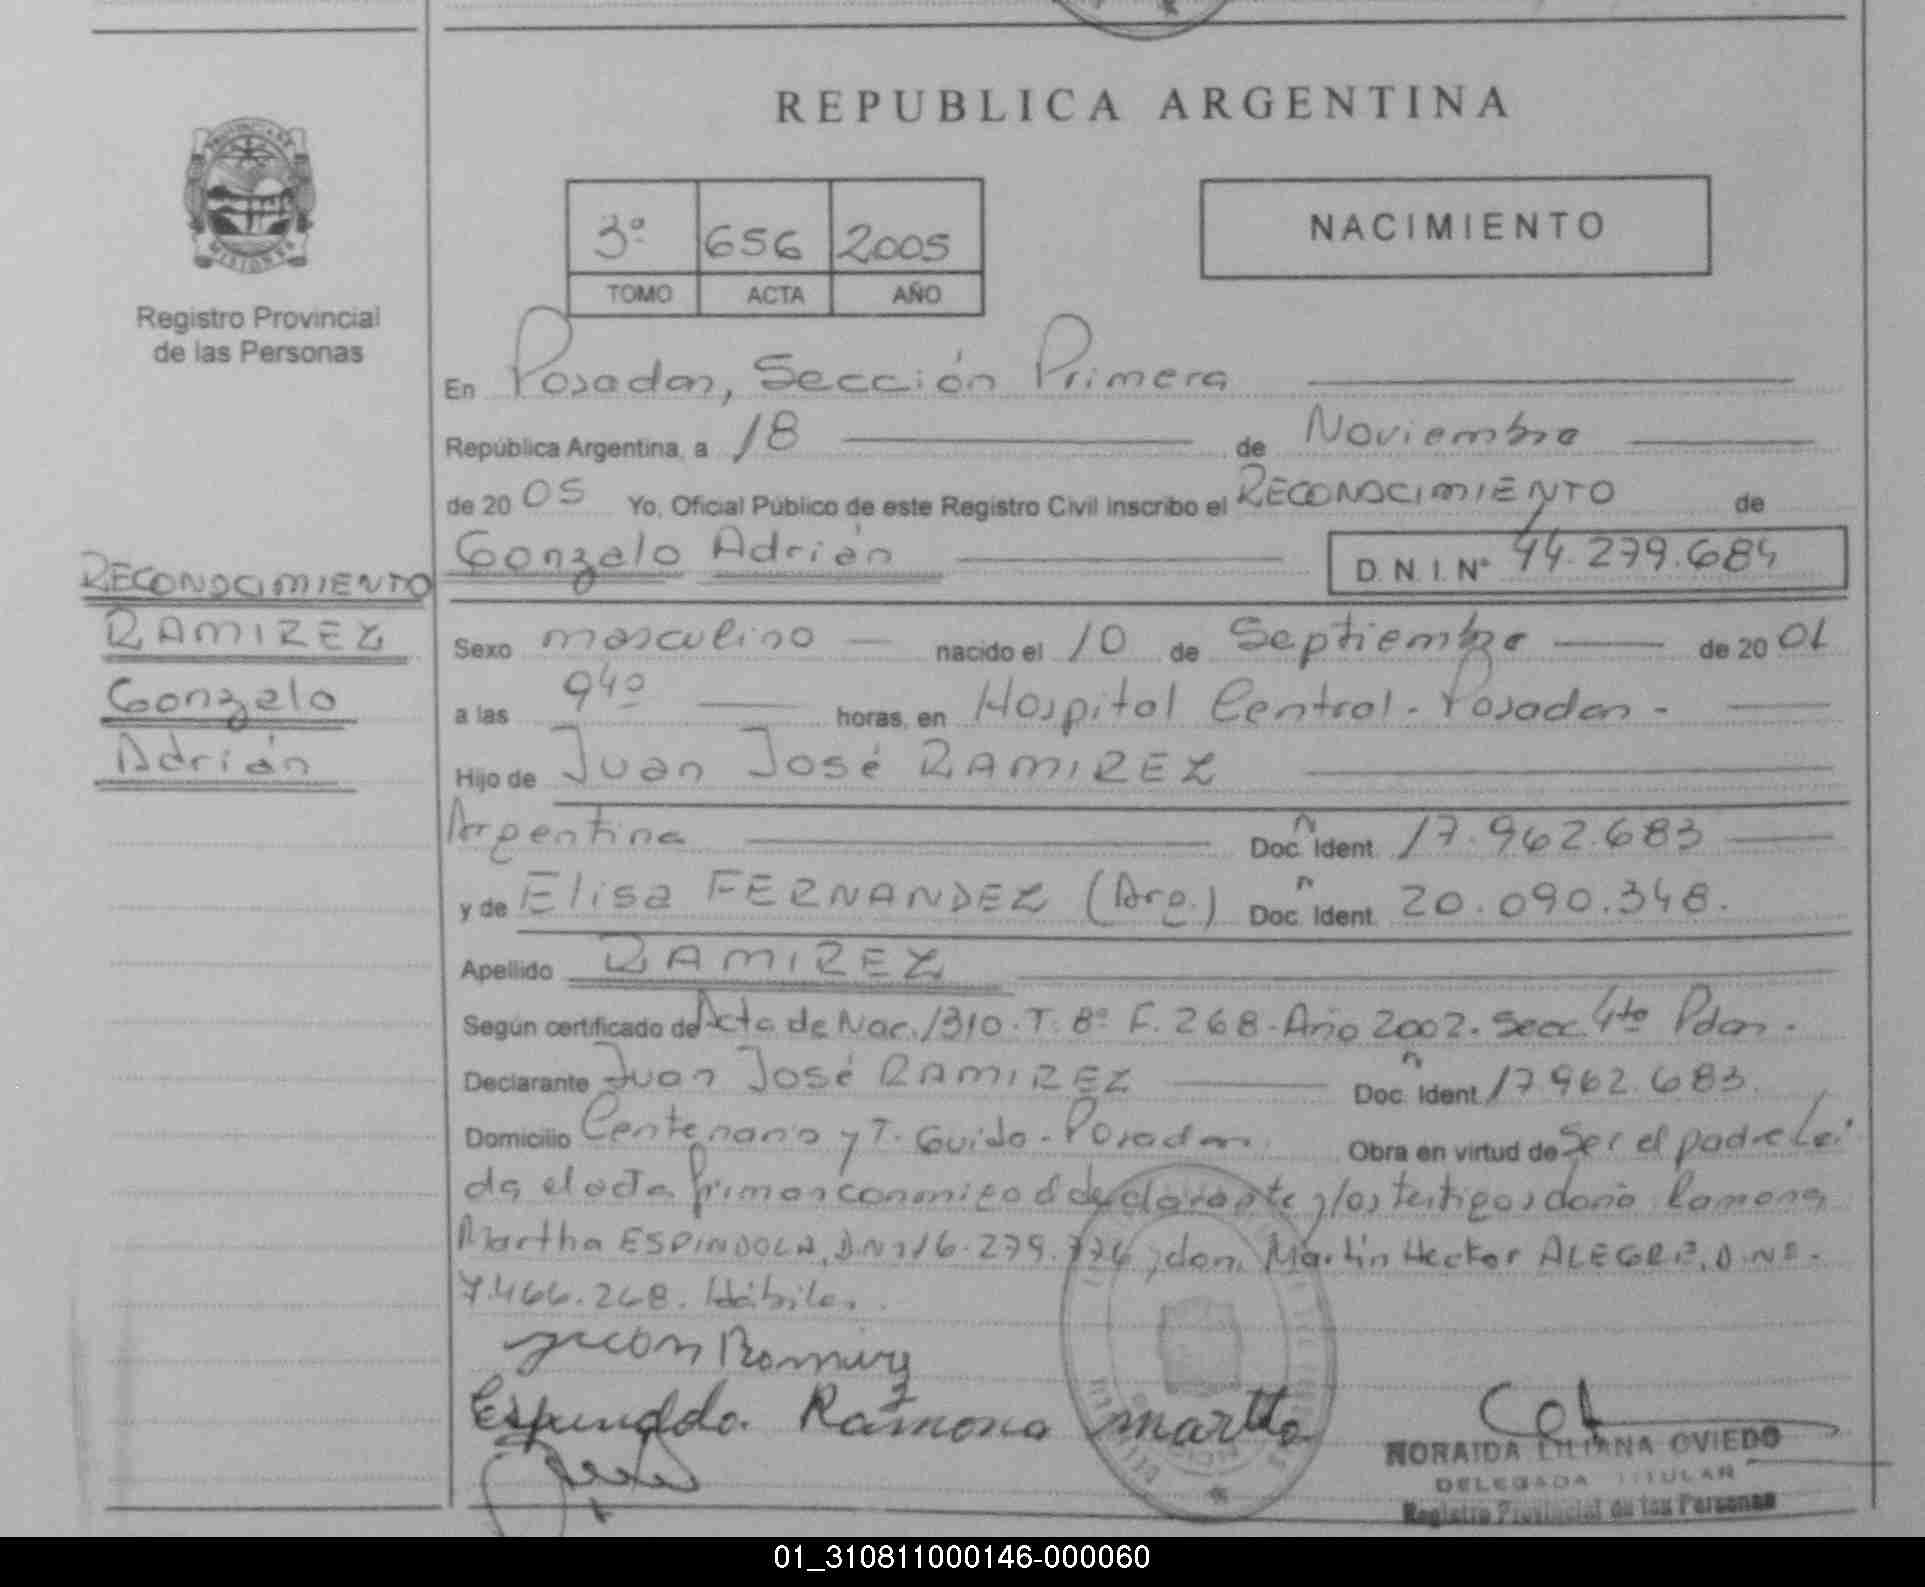 REPUBLICA ARGENTINA
3º 656 2005
TOMO ACTA AÑO
NACIMIENTO
Registro Provincial
de las Personas
En Posadas, Sección Primera
República Argentina, a 18 de Noviembre
de 20 05 Yo, Oficial Público de este Registro Civil inscribo el RECONOCIMIENTO de
Gonzalo Adrián D. N. I. Nº 44.279.684
RECONOCIMIENTO
RAMIREZ
Gonzalo
Adrián
Sexo masculino nacido el 10 de Septiembre de 20 01
a las 940 horas, en Hospital Central - Posadas -
Hijo de Juan José RAMIREZ
Argentina Doc. Ident. 17.962.683
y de Elisa FERNANDEZ (Arg.) Doc. Ident. 20.090.348.
Apellido RAMIREZ
Según certificado de Acta de Nac. 1310. T. 8º F. 268 - Año 2002. Secc. 4ta Pdas.
Declarante Juan José RAMIREZ Doc. Ident. 17.962.683.
Domicilio Centenario y T. Guido - Posadas. Obra en virtud de Ser el padre Leí
da el acta firman conmigo el declarante y los testigos doña Ramona
Martha ESPINDOLA, DNI 16.279.776 y don Martín Hector ALEGRE, D.N.I.
7.466.268. Hábiles.
Juan Ramirez
Espindola Ramona Martha
NORAIDA LILIANA OVIEDO
DELEGADA TITULAR
Registro Provincial de las Personas
01_310811000146-000060